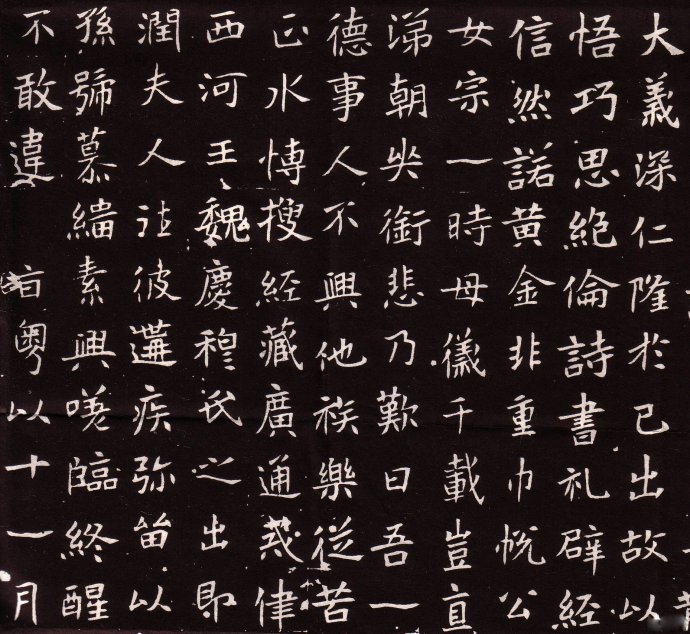 大義深仁隆於己出故以
悟巧思絶倫詩書礼辟経
信然諾黄金非重巾帨公
女宗一時母儀千載豈直
涕朝銜悲乃歎曰吾一
德事人不興他族樂從苦
正水博搜經藏廣通戒律
西河王魏慶穆氏之出即
潤夫人彼遘疾弥留以
孫號慕緇素興嗟臨終醒
不敢違 旨粵以十一月